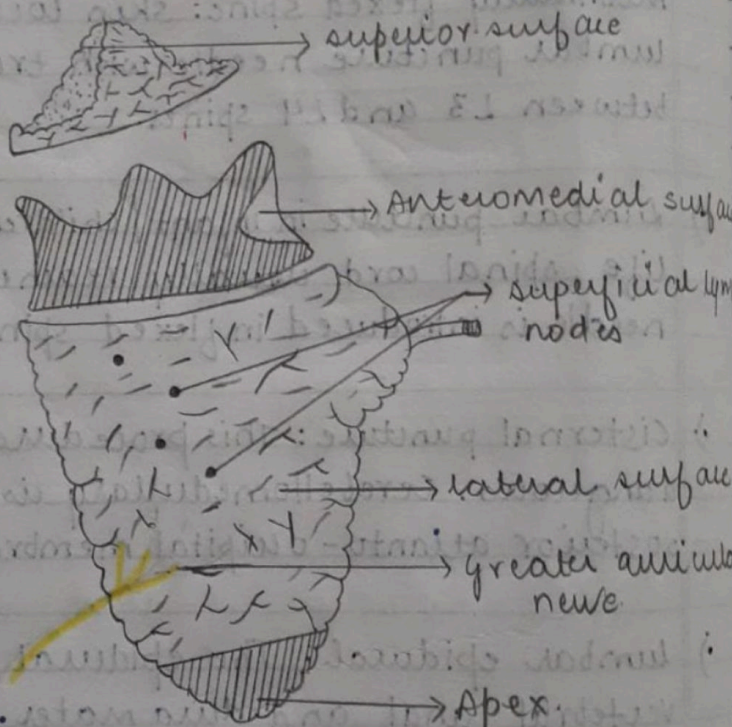 superior surface
Anteromedial surfa
superficial lym
nodes
lateral surface
greater auricula
nerve.
Apex.